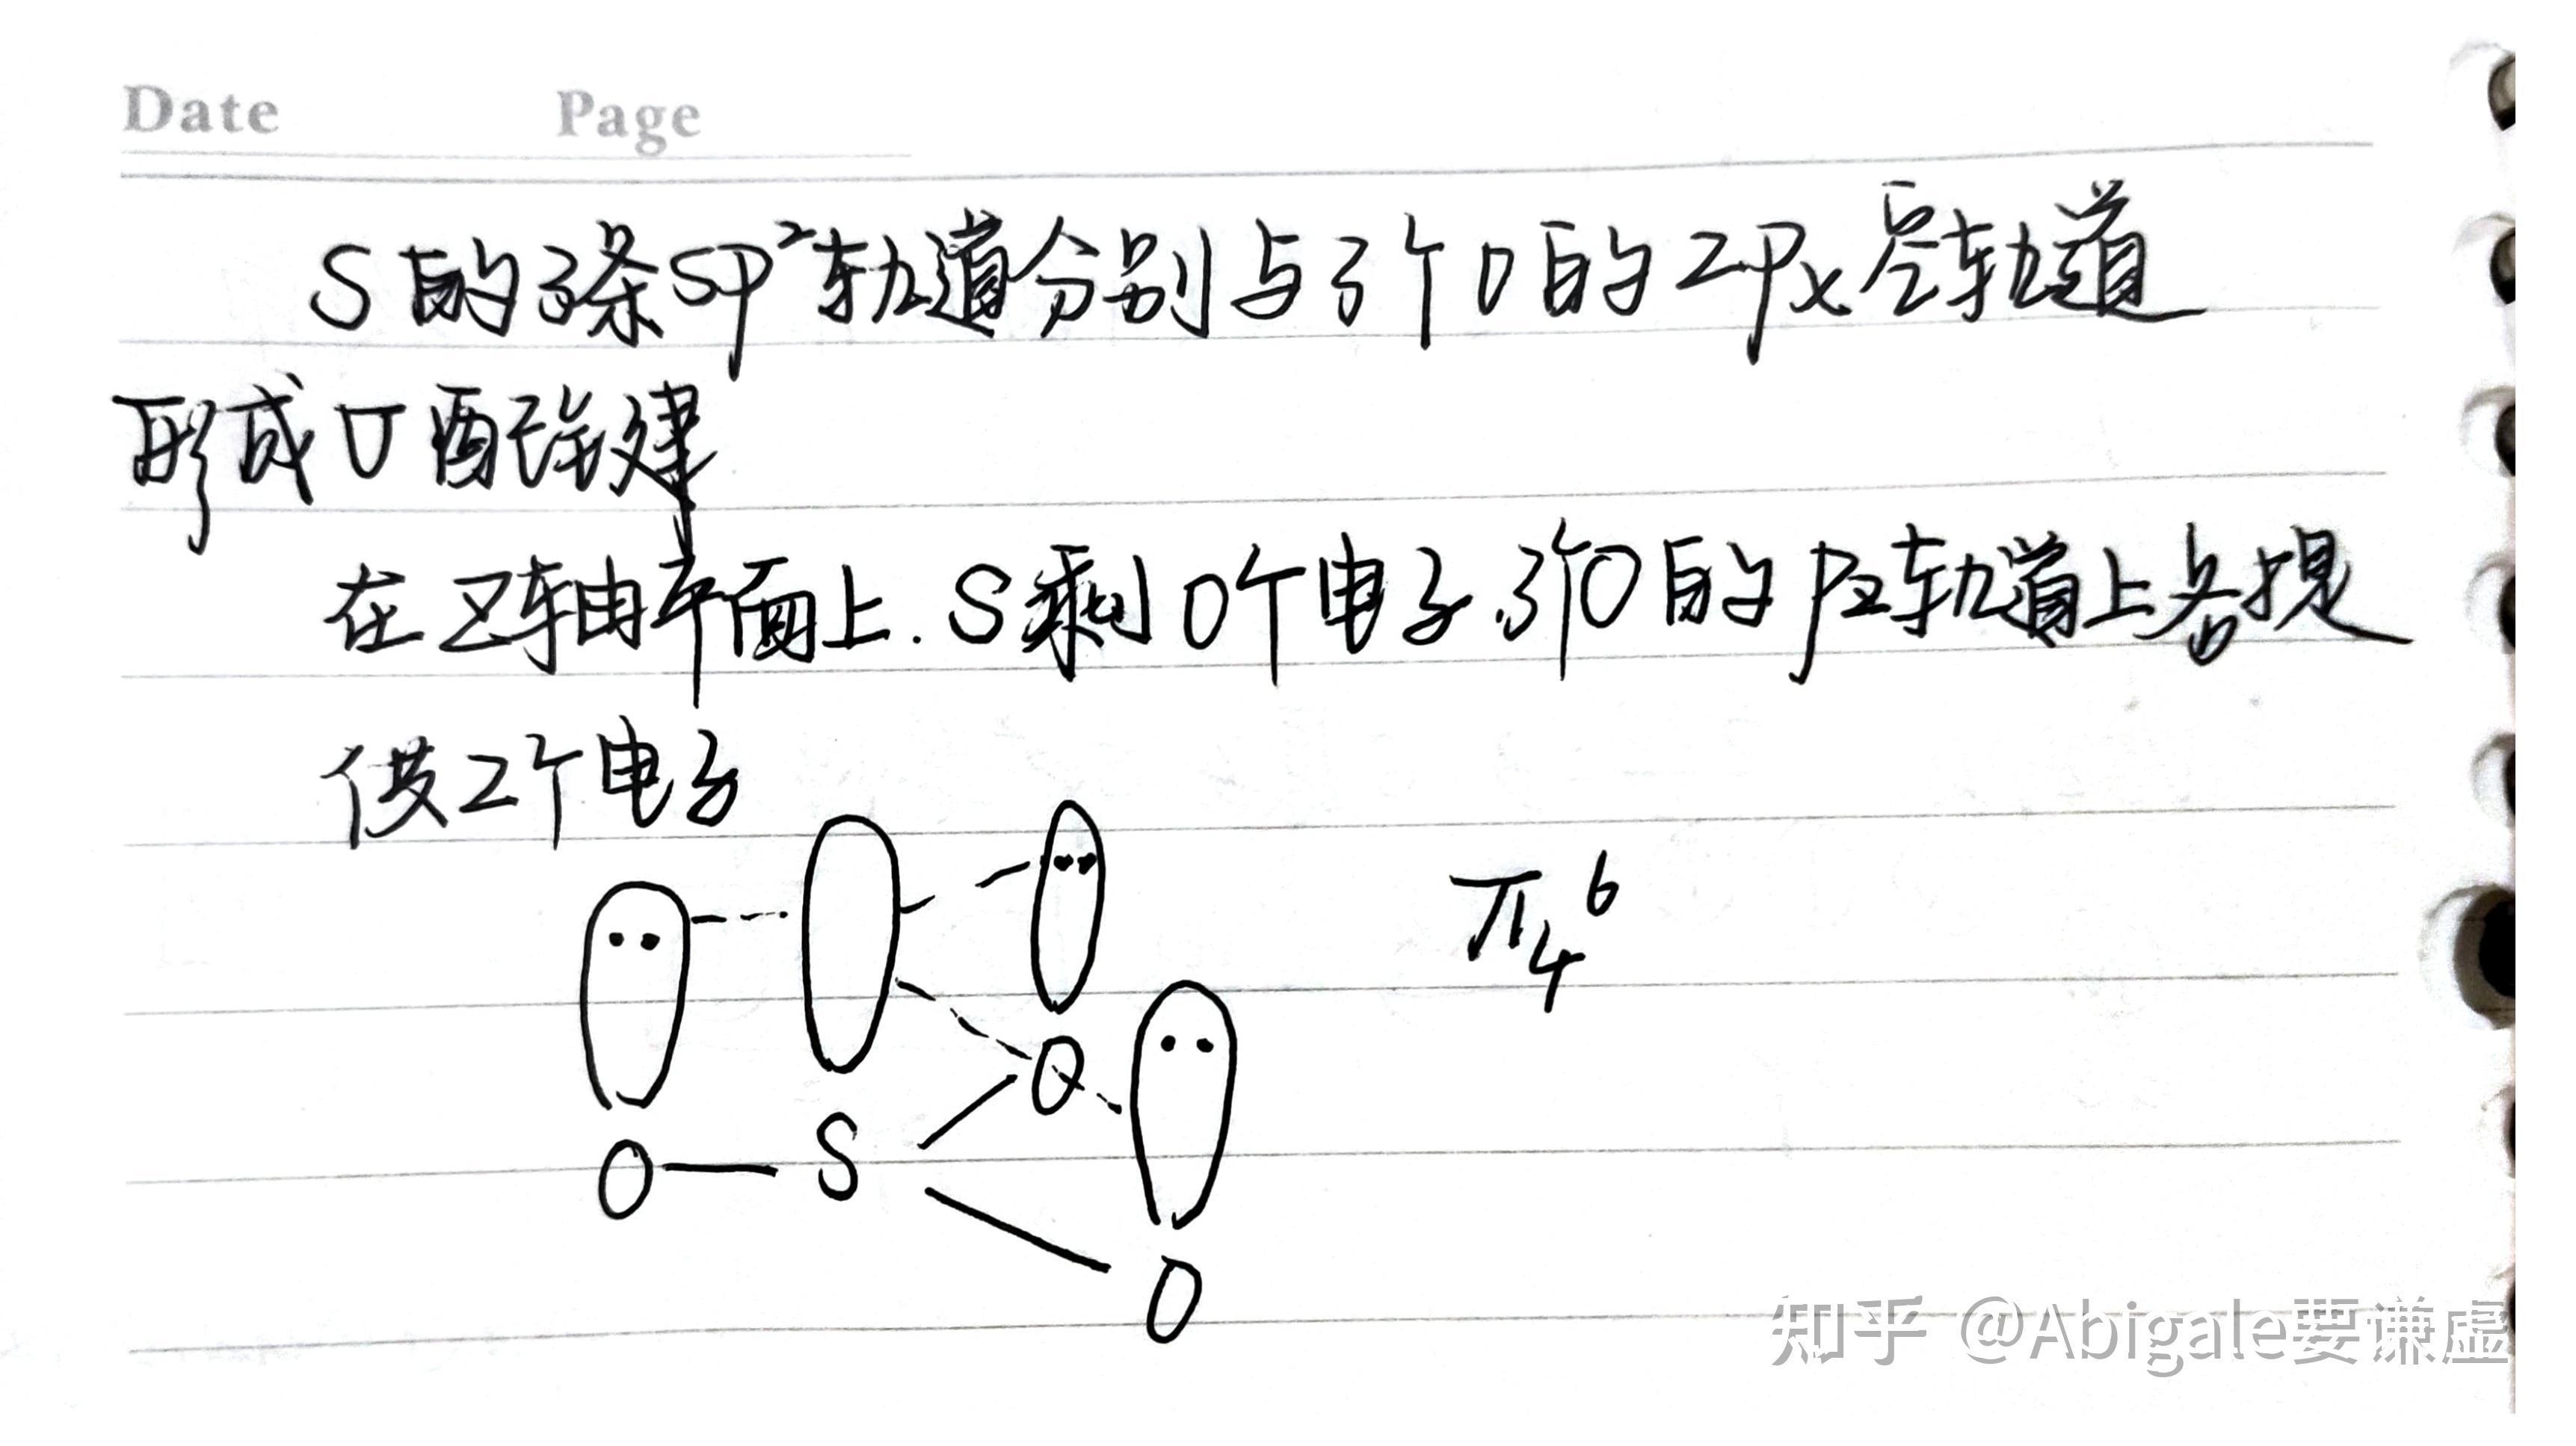 Date Page
S的3条SP²轨道分别与3个O的2Px空轨道
形成σ配位键
在Z轴平面上.S剩0个电子.3个O的Pz轨道上各提
供2个电子
π₄⁶
O S O
O
知乎 @Abigale要谦虚